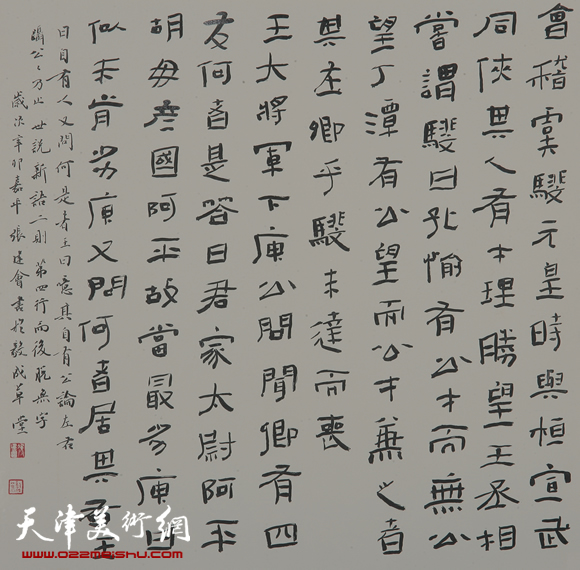 會稽虞騣元皇時與桓宣武
同俠其人有才理勝望王丞相
嘗謂騣曰孔愉有公才而無公
望丁潭有公望而公才兼之者
其在卿乎騣未達而喪
王大將軍下庾公問聞卿有四
友何者是答曰君家太尉阿平
胡毋彥國阿平故當最劣庾曰
似未肯劣庾又問何者居其右王
曰自有人又問何是者王曰噫其自有公論左右
躡公公乃止 世說新語二則 第四行而後脫無字
歲次辛卯嘉平張建會書於敬成草堂
天津美術網
www.022meishu.com